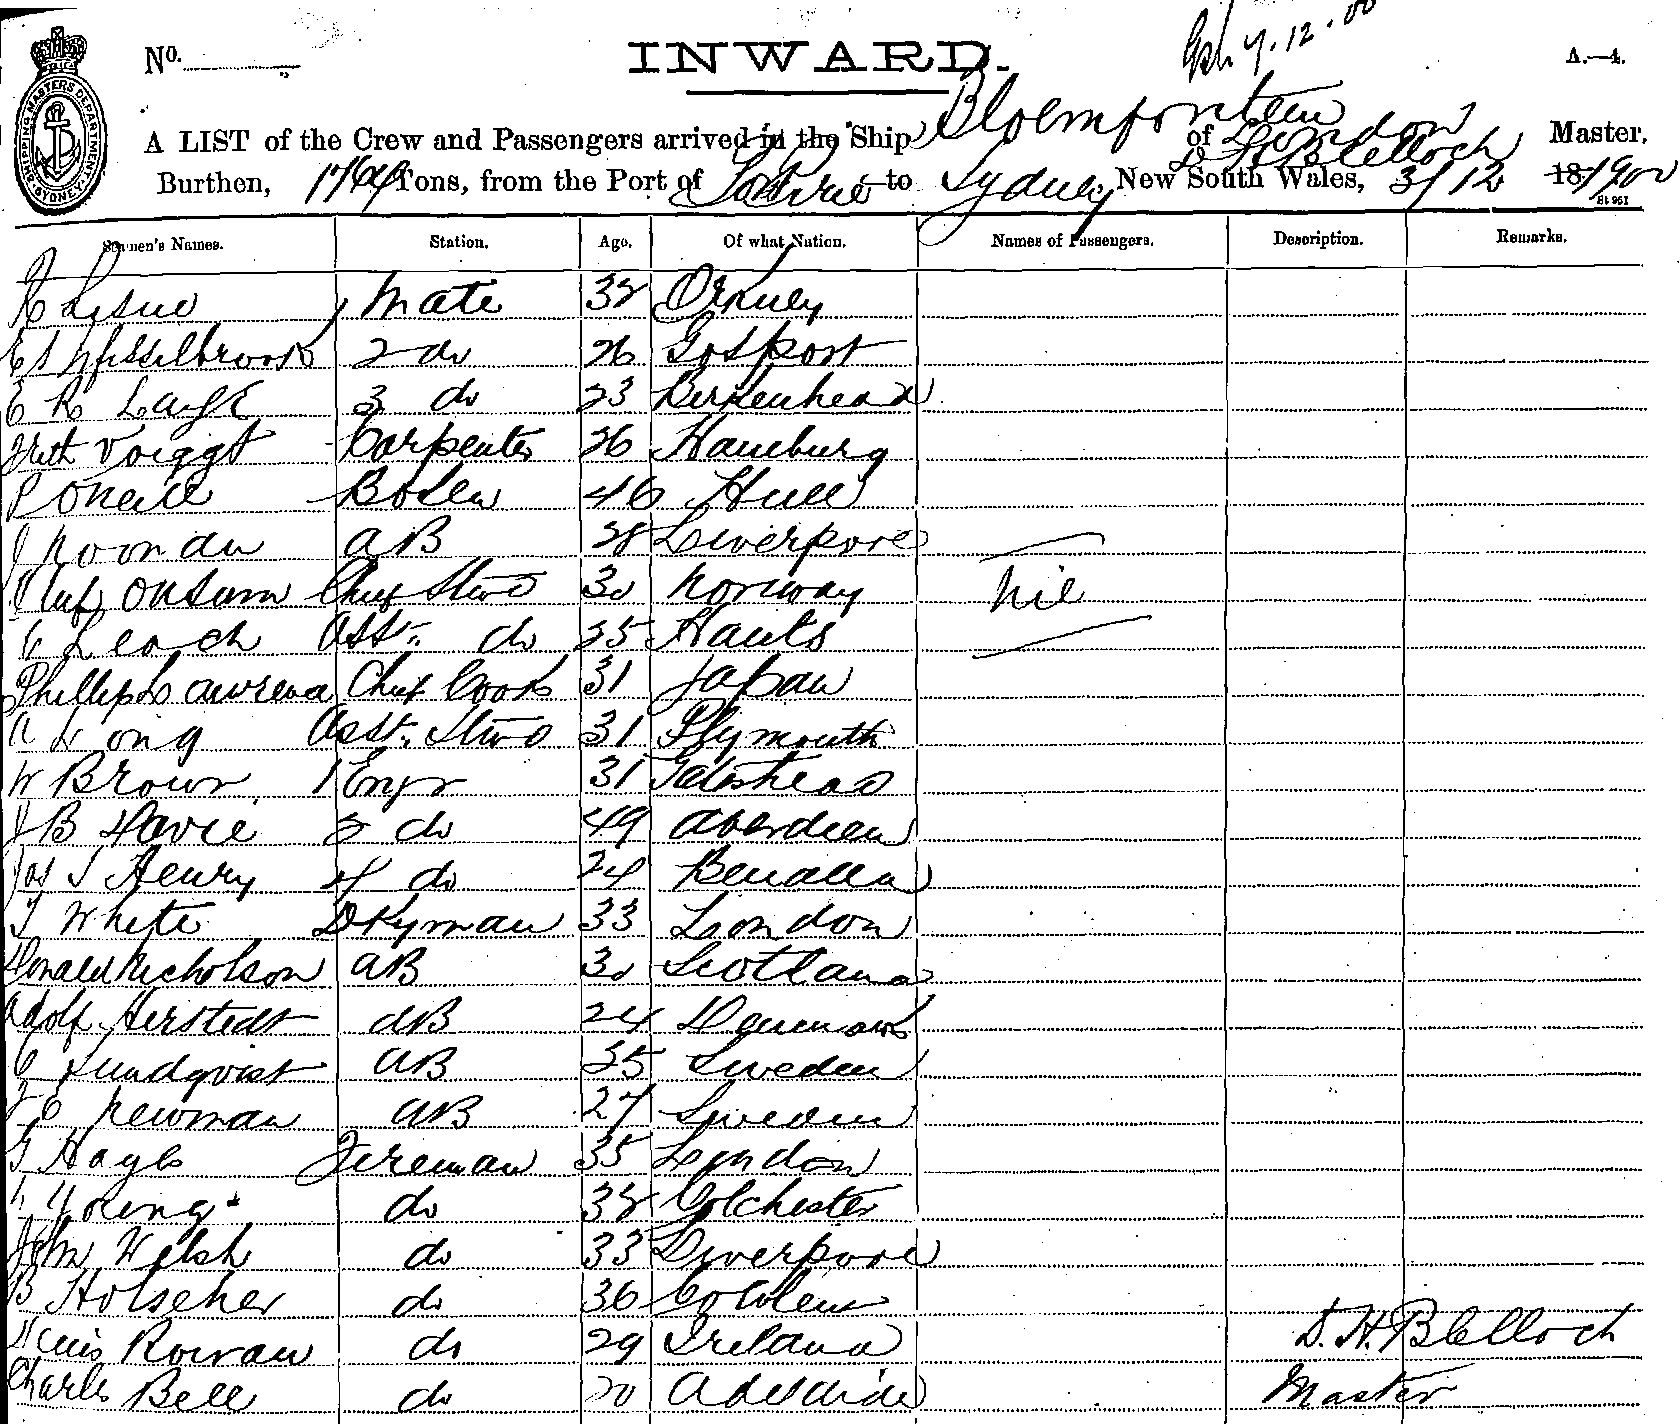 7.12.00
No.
INWARD.
A.—4.
SHIPPING MASTERS DEPARTMENT SYDNEY
A LIST of the Crew and Passengers arrived in the Ship Bloemfontein of London D H Blelloch Master,
Burthen, Tons, from the Port of to Sydney New South Wales, 3/12 18 1900
St 961
Seamen's Names. Station. Age. Of what Nation. Names of Passengers. Description. Remarks.
Mate 38 Orkney
2 do 26 Gosport
E R 3 do 23 Birkenhead
Voiggt Carpenter 26 Hamburg
P ONeill Bosen 46 Hull
J Noonan AB 28 Liverpool
Chief Stwd 30 Norway Nil
Leach Asst. do 25 Hants
Phillip Chief Cook 31 Japan
A Long Asst. Stwd 31 Plymouth
W Brown 1 Engr 31 Gateshead
J B Davie 3 do 49 Aberdeen
Jos S Henry 4 do 24 Benalla
T White Dkyman 33 London
Donald Nicholson AB 30 Scotland
Adolf Herstedt AB 24 Denmark
C Lundqvist AB 25 Sweden
Newman AB 27 Sweden
G Hayls Fireman 35 London
Young do 38 Colchester
John Welsh do 33 Liverpool
B Holscher do 36
Denis Rowan do 29 Ireland D. H. Blelloch
Charles Bell do 20 Adelaide Master